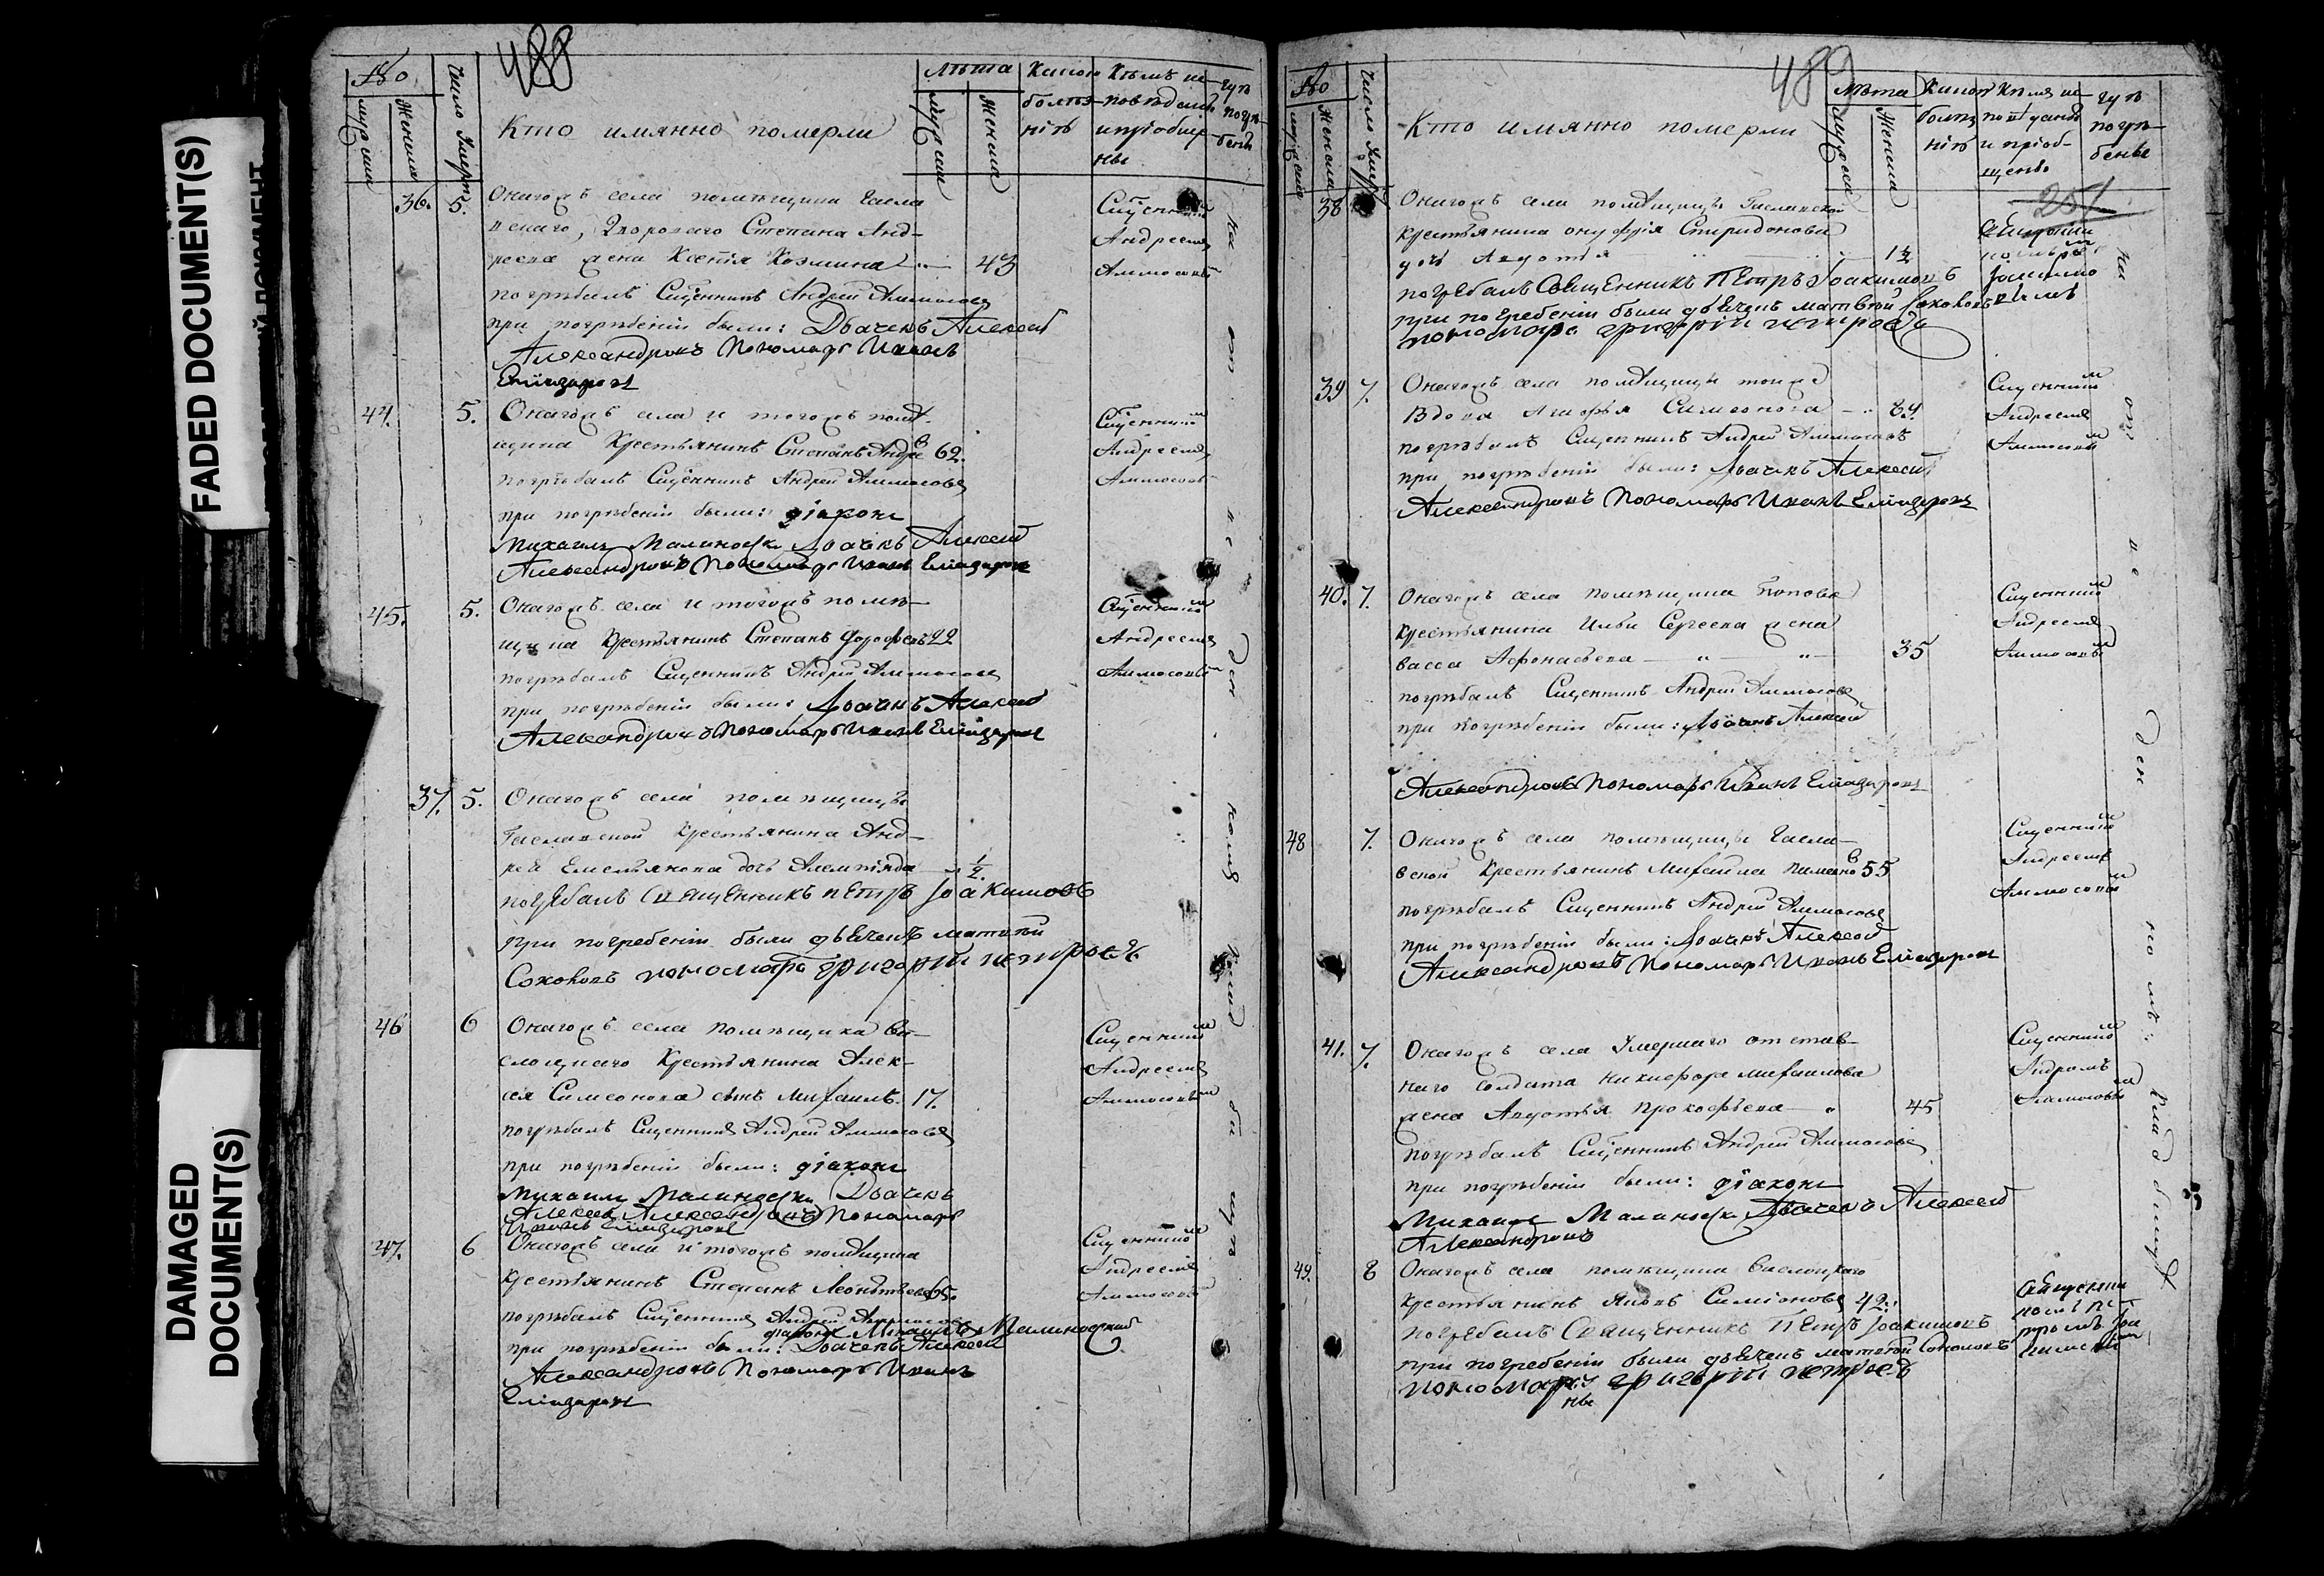 FADED DOCUMENT(S)
DAMAGED DOCUMENT(S)
488
№
мужеска
Женска
Число Умерш
Кто имянно померли
лѣта
мужеска
Женска
Какою болѣзнію
Кѣмъ исповѣданы и пріобщены
гдѣ погребены
36. 5. Онагожъ села помѣщика
Двороваго Степана Анд-
реева жена Ксенія Козмина 43
погрѣбалъ Сщенникъ Андрей Аммосовъ
при погрѣбеніи были: Дьячекъ Алексей
Александровъ Пономарь Иванъ
Елиазаровъ
Сщенникомъ
Андреемъ
Аммосовымъ
44. 5. Онагожъ села и тогожъ помѣ-
щика Крестьянинъ Степанъ Андрев 62.
погрѣбалъ Сщенникъ Андрей Аммосовъ
при погрѣбеніи были: діаконъ
Михаилъ Малиновски Дьячекъ Алексей
Александровъ Пономарь Иванъ Елиазаровъ
Сщенникомъ
Андреемъ
Аммосовымъ
45. 5. Онагожъ села и тогожъ помѣ-
щика Крестьянинъ Степанъ Дорофеевъ 22
погрѣбалъ Сщенникъ Андрей Аммосовъ
при погрѣбеніи были: Дьячекъ Алексей
Александровъ Пономарь Иванъ Елиазаровъ
Сщенникомъ
Андреемъ
Аммосовымъ
37. 5. Онагожъ села помѣщицы
Крестьянина Анд-
рея Емельянова дочь 1/2.
погребалъ Священникъ Петръ Іоакимовъ
при погребеніи были дьячекъ матвей
Соколовъ пономарь григорій петровъ
46 6 Онагожъ села помѣщика Ва-
Крестьянина Алек-
сея Симеонова сынъ Михаилъ 17.
погрѣбалъ Сщенникъ Андрей Аммосовъ
при погрѣбеніи были: діаконъ
Михаилъ Малиновски Дьячекъ
Алексей Александровъ Пономарь
Иванъ Елиазаровъ
Сщенникомъ
Андреемъ
Аммосовымъ
47. 6 Онагожъ села и тогожъ помѣщика
Крестьянинъ Степанъ Леонтьевъ 65.
погрѣбалъ Сщенникъ Андрей Аммосовъ
діаконъ Михаилъ Малиновский
при погрѣбеніи были: Дьячекъ Алексей
Александровъ Пономарь Иванъ
Елиазаровъ
Сщенникомъ
Андреемъ
Аммосовымъ
489
№
мужеска
Женска
Число Умер
Кто имянно померли
лѣта
мужеска
Женска
гдѣ погребены
251
38 Онагожъ села помѣщицы
Крестьянина онуфрія Спиридонова
дочь Авдотья
погребалъ Священникъ Петръ Іоакимовъ
при погребеніи были дьячекъ матвей Соколовъ
пономарь григорій петровъ
39 7. Онагожъ села помѣщицы тойже
Вдова Симеонова 84.
погрѣбалъ Сщенникъ Андрей Аммосовъ
при погрѣбеніи были: Дьячекъ Алексей
Александровъ Пономарь Иванъ Елиазаровъ
Сщенникомъ
Андреемъ
Аммосовымъ
40. 7. Онагожъ села помѣщика Попова
Крестьянина Ильи Сергеева жена
васса Афонасьева 35
погрѣбалъ Сщенникъ Андрей Аммосовъ
при погрѣбеніи были: Дьячекъ Алексей
Александровъ Пономарь Иванъ Елиазаровъ
Сщенникомъ
Андреемъ
Аммосовымъ
48 7. Онагожъ села помѣщицы
Крестьянинъ Михаила Пименов 55
погрѣбалъ Сщенникъ Андрей Аммосовъ
при погрѣбеніи были: Дьячекъ Алексей
Александровъ Пономарь Иванъ Елиазаровъ
Сщенникомъ
Андреемъ
Аммосовымъ
41. 7. Онагожъ села Умершаго отстав-
наго солдата никифора михаилова
жена Авдотья Прокофьева 45
погрѣбалъ Сщенникъ Андрей Аммосовъ
при погрѣбеніи были: діаконъ
Михаилъ Малиновски Дьячекъ Алексей
Александровъ
Сщенникомъ
Андреемъ
Аммосовымъ
49. 8 Онагожъ села помѣщика
Крестьянинъ Яковъ Симіоновъ 42:
погребалъ Священникъ Петръ Іоакимовъ
при погребеніи были дьячекъ матвей Соколовъ
пономарь григорій петровъ